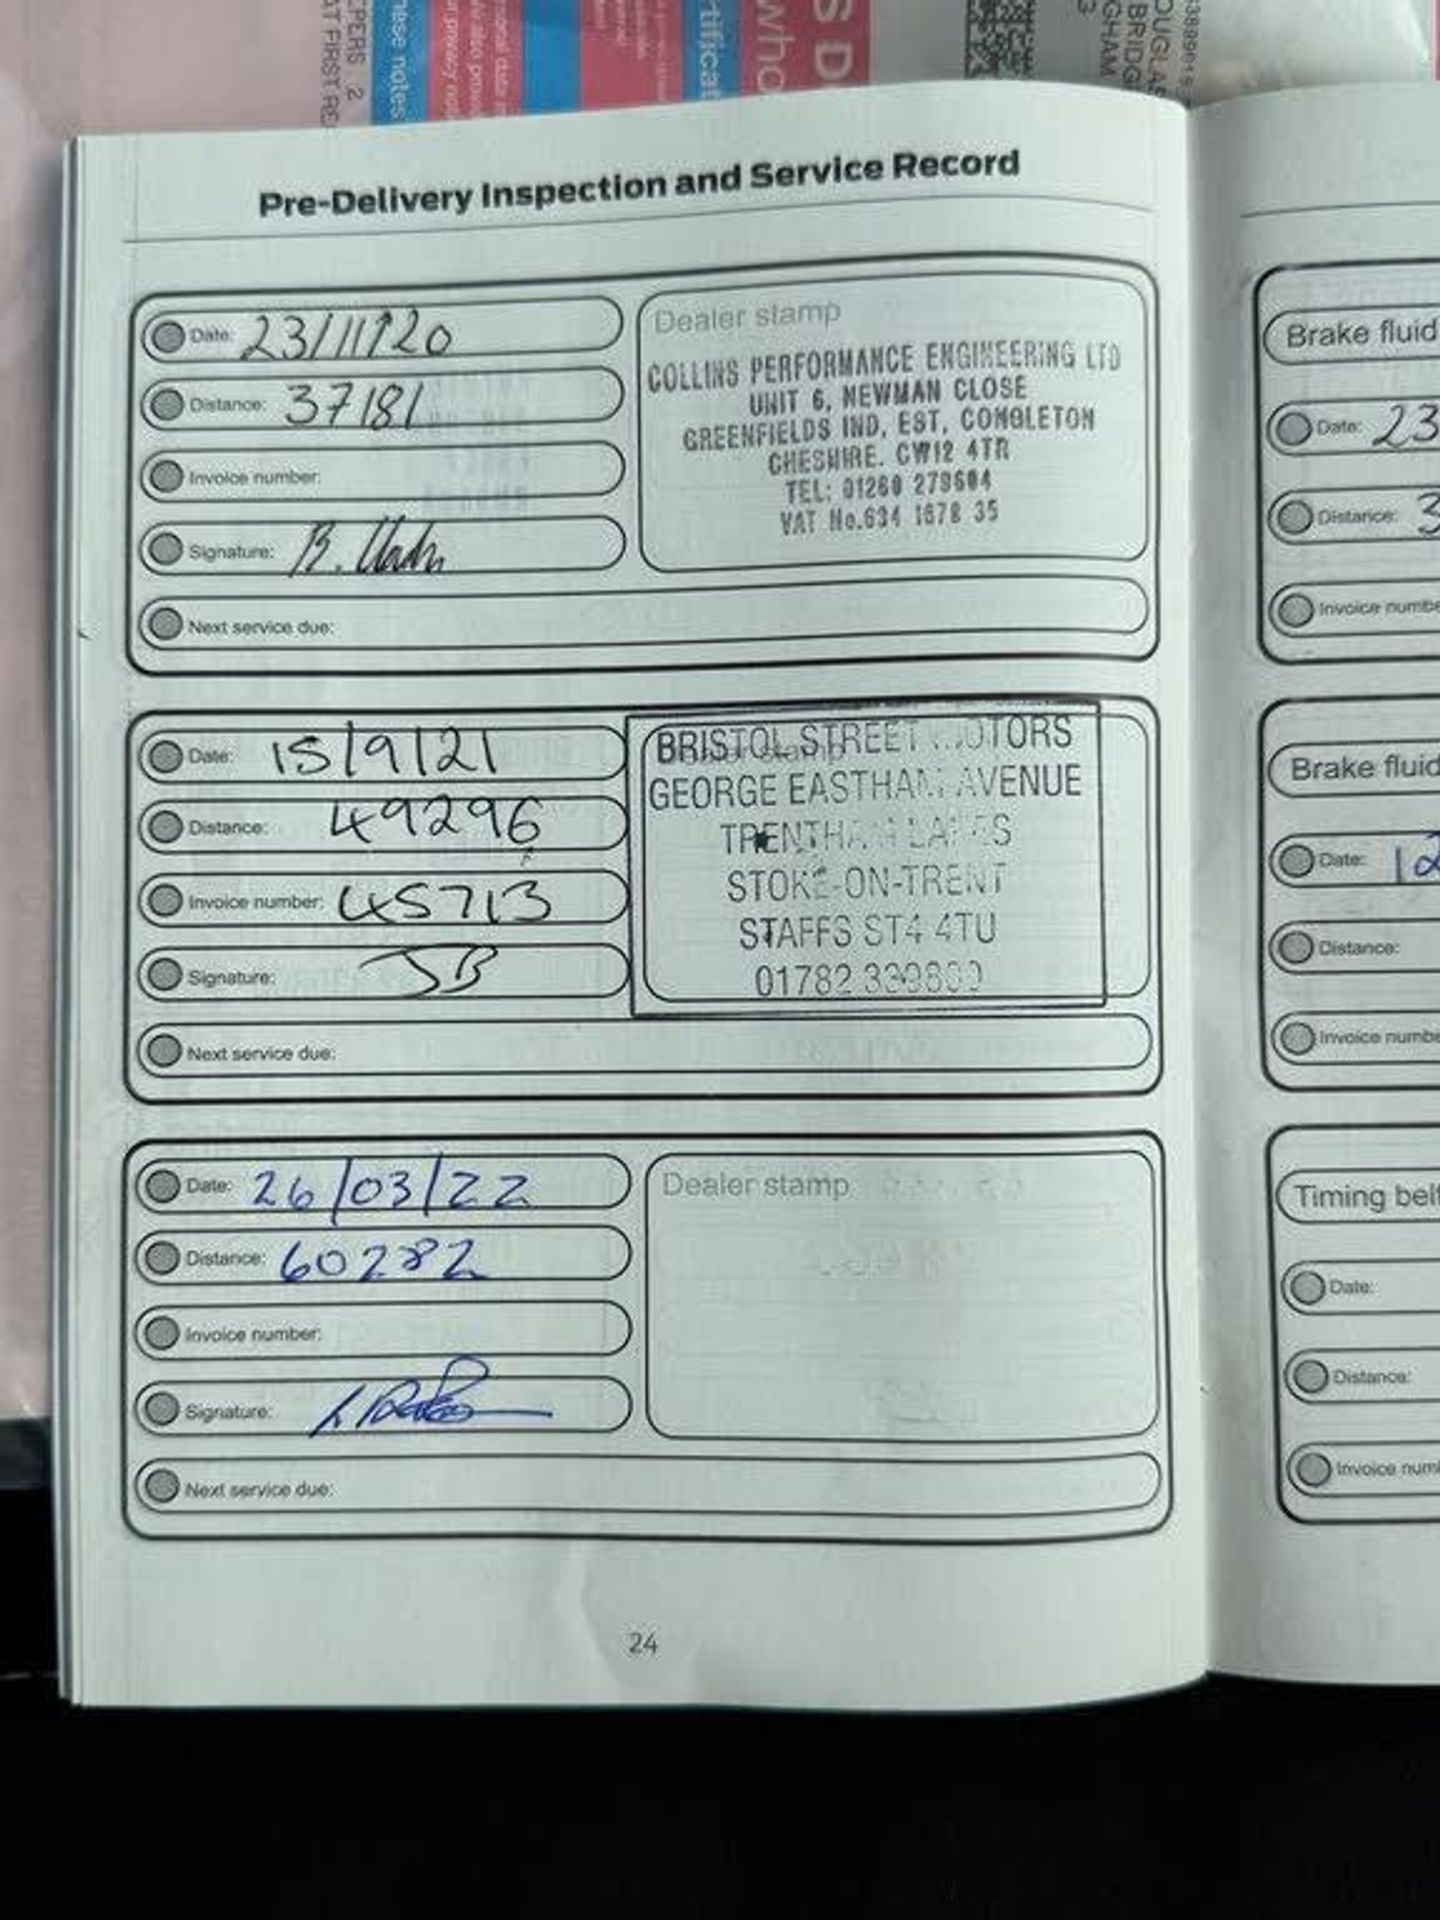 hese notes
tificat
who
S D
CPERS 2
AT FIRST
BRIDG
GHAM
Pre-Delivery Inspection and Service Record
Date: 23/11/20
Distance: 37181
Invoice number:
Signature:
Next service due:
Dealer stamp
COLLINS PERFORMANCE ENGINEERING LTD
UNIT 6, NEWMAN CLOSE
GREENFIELDS IND. EST. CONGLETON
CHESHIRE. CW12 4TR
TEL: 01260 279604
VAT No.634 1678 35
Date: 15/9/21
Distance: 49296
Invoice number: 45713
Signature: JB
Next service due:
Dealer stamp
BRISTOL STREET MOTORS
GEORGE EASTHAM AVENUE
TRENTHAM LAKES
STOKE-ON-TRENT
STAFFS ST4 4TU
01782
Date: 26/03/22
Distance: 60282
Invoice number:
Signature:
Next service due:
Dealer stamp
24
Brake fluid
Date: 23
Distance: 3
Invoice numbe
Brake fluid
Date: 12
Distance:
Invoice numbe
Timing belt
Date:
Distance:
Invoice num